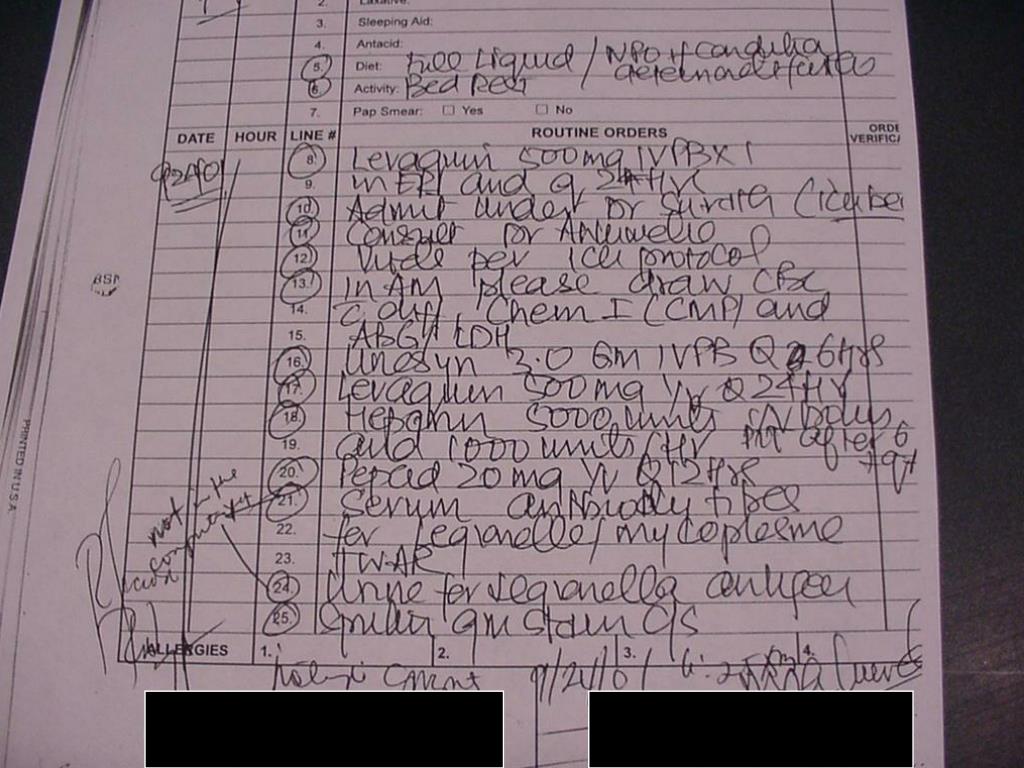 2. Laxative:
3. Sleeping Aid:
4. Antacid:
5. Diet: Full Liquid / NPO if
6. Activity: Bed Rest
7. Pap Smear: ☐ Yes ☐ No
DATE HOUR LINE # ROUTINE ORDERS ORDE
VERIFICA
8. Levaquin 500mg IVPB X 1
9. in ER and q 24 HR
10. Admit under Dr
11. Consult Dr
12. Vitals per ICU protocol
13. In AM please draw CBC
14. c diff, Chem I (CMP) and
15. ABG, LDH
16. Unasyn 3.0 Gm IVPB Q 6Hrs
17. Levaquin 500mg IV Q 24HR
18. Heparin 5000 units IV bolus
19. and 1000 units/HR PTT after 6
20. Pepcid 20mg IV Q 12Hrs
21. Serum antibody titres
22. for Legionella/mycoplasma
23. TWAR
24. Urine for legionella antigen
25. Sputum gm stain C/S
not in the
computer
ALLERGIES 1. 2. 3. 4.
PRINTED IN U.S.A.